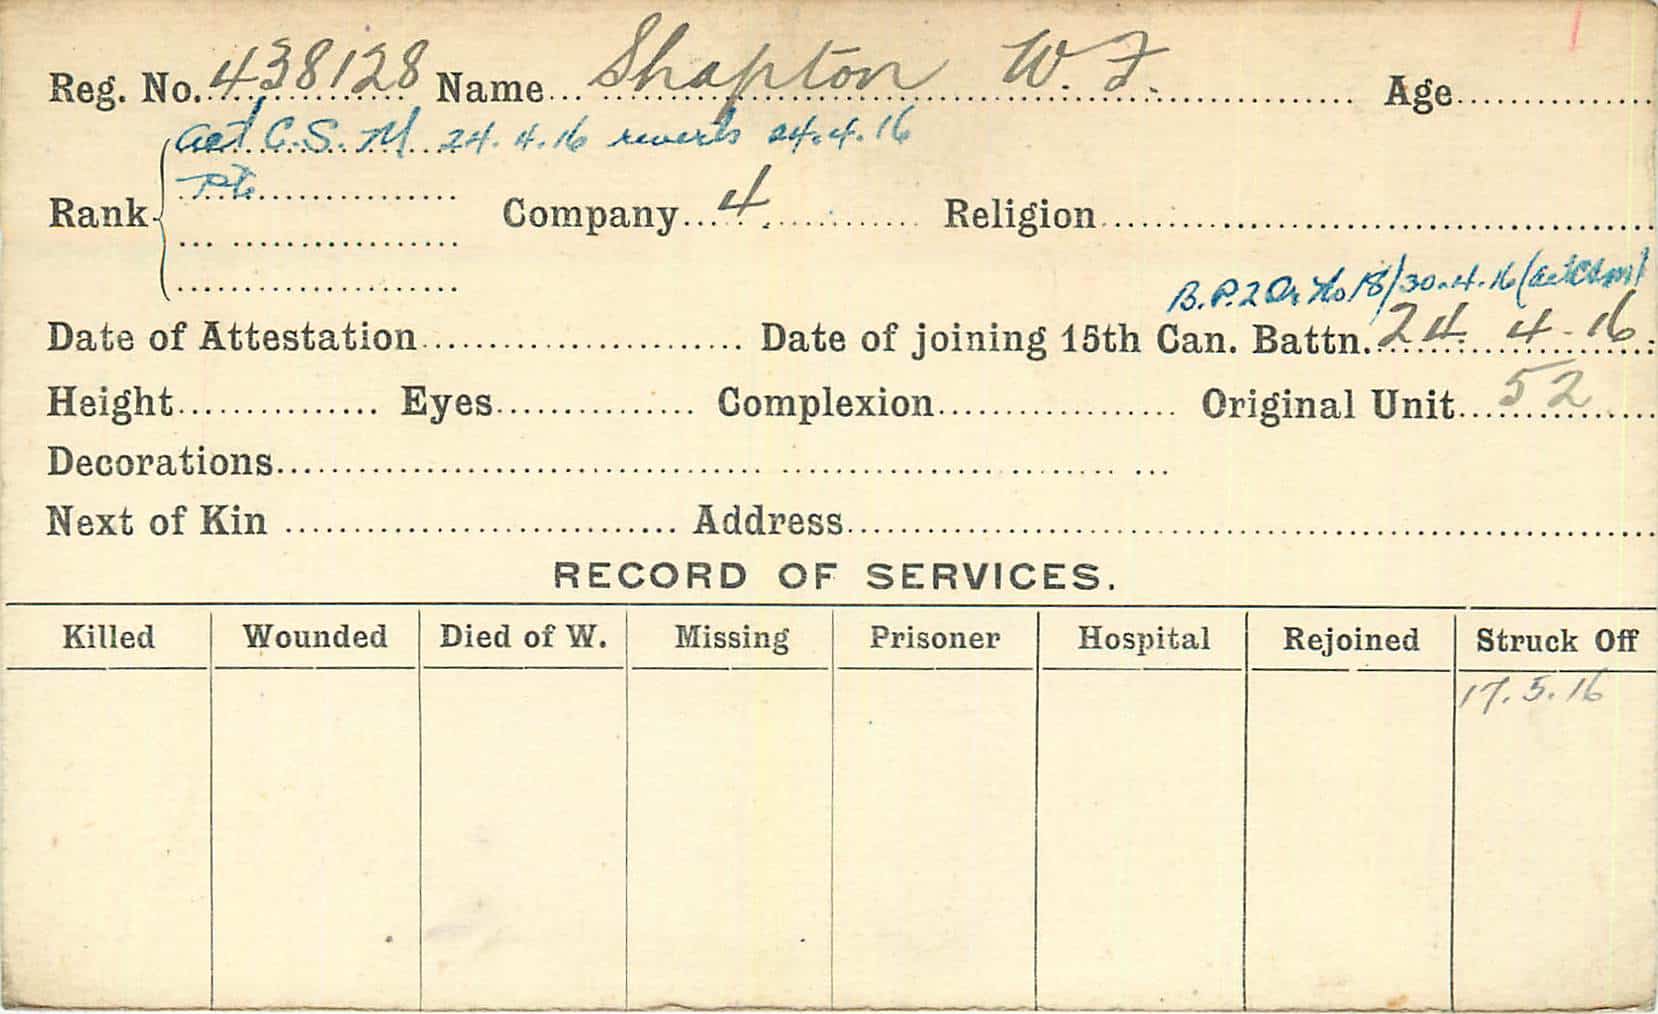 Reg. No. 438128 Name Shapton W. F. Age
Act C.S.M. 24.4.16 reverts 24.4.16
Pte
Rank Company 4 Religion
B.P.2 Or No 18/30.4.16 (act CSM)
Date of Attestation Date of joining 15th Can. Battn. 24. 4-16
Height Eyes Complexion Original Unit 52
Decorations
Next of Kin Address
RECORD OF SERVICES.
Killed Wounded Died of W. Missing Prisoner Hospital Rejoined Struck Off
17.5.16